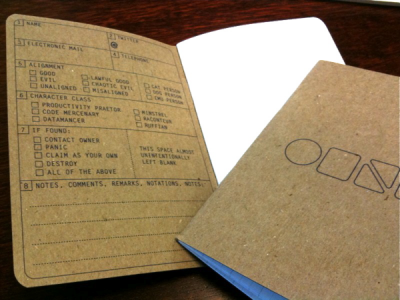 1 NAME
2 TWITTER
@
3 ELECTRONIC MAIL
4 TELEPHONE
5 ALIGNMENT
GOOD
EVIL
UNALIGNED
LAWFUL GOOD
CHAOTIC EVIL
MISALIGNED
CAT PERSON
DOG PERSON
6 CHARACTER CLASS
PRODUCTIVITY PRAETOR
CODE MERCENARY
DATAMANCER
MINSTREL
RACONTEUR
RUFFIAN
7 IF FOUND:
CONTACT OWNER
PANIC
CLAIM AS YOUR OWN
DESTROY
ALL OF THE ABOVE
THIS SPACE ALMOST
UNINTENTIONALLY
LEFT BLANK
8 NOTES, COMMENTS, REMARKS, NOTATIONS, NOTES.